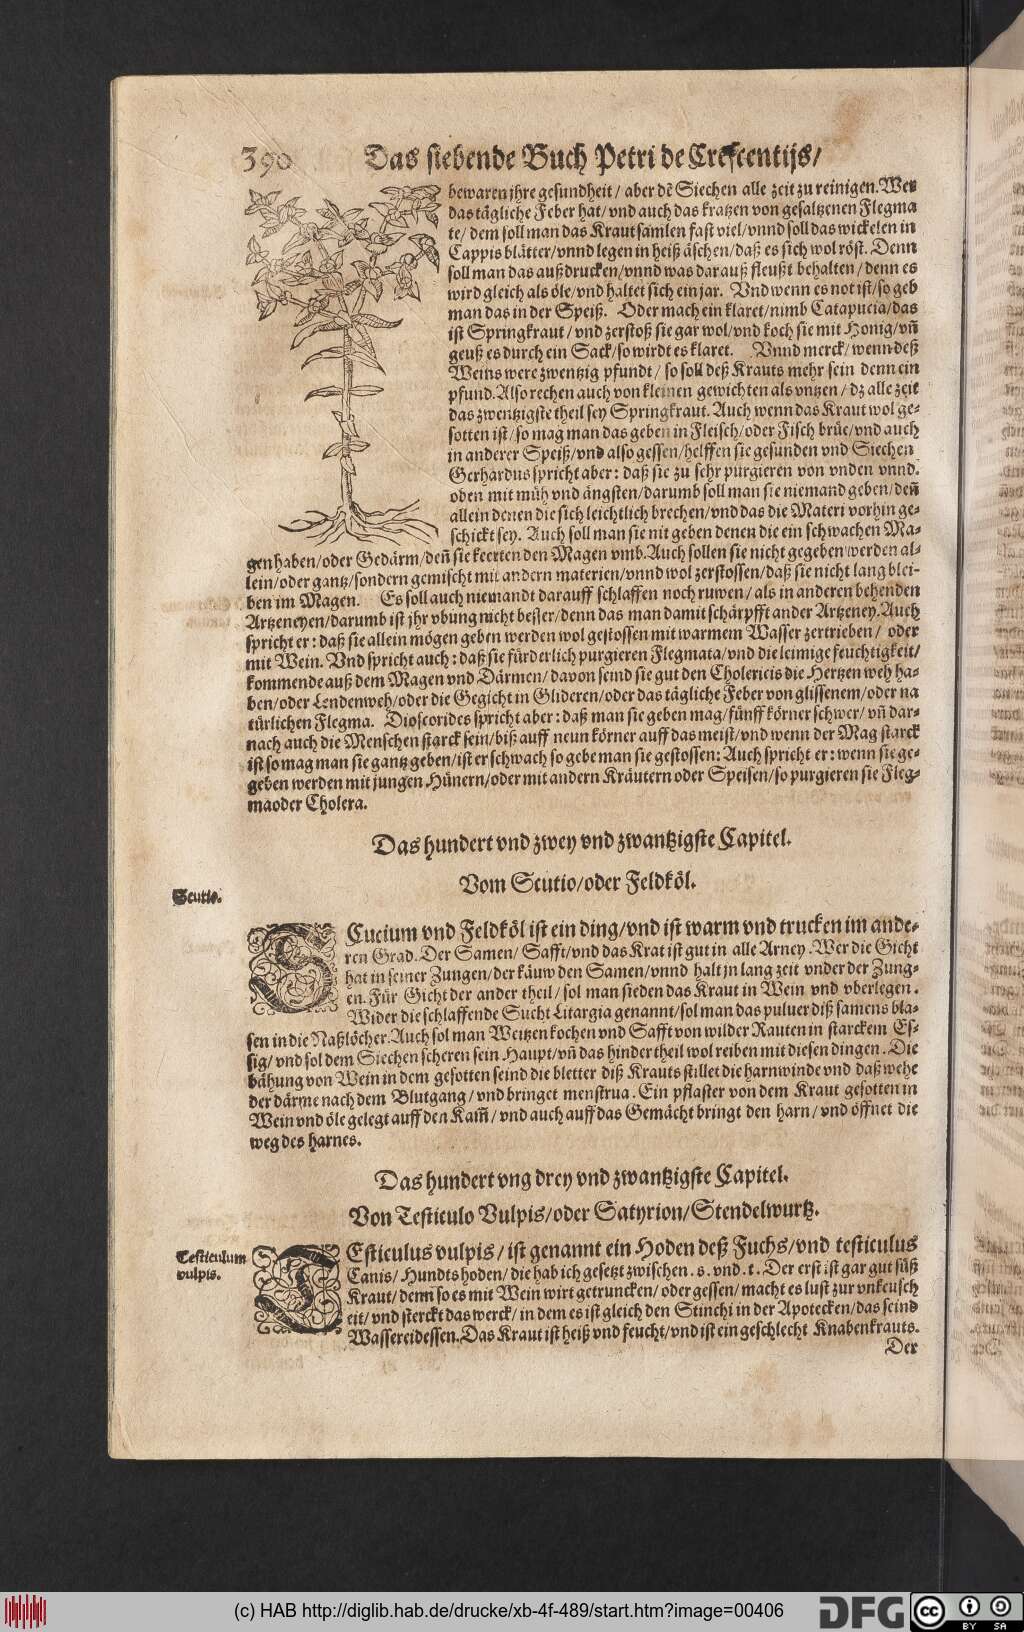 390 Das siebende Buch Petri de Crescentijs/
bewaren jhre gesundheit/ aber dē Siechen alle zeit zu reinigen. Wer
das tägliche Feber hat/ vnd auch das kratzen von gesaltzenen Flegma
te/ dem soll man das Kraut samlen fast viel/ vnnd soll das wickelen in
Cappis blätter/ vnnd legen in heiß äschen/ daß es sich wol röst. Denn
soll man das außdrucken/ vnnd was darauß fleußt behalten/ denn es
wird gleich als öle/ vnd haltet sich ein jar. Vnd wenn es not ist/ so geb
man das in der Speiß. Oder mach ein klaret/ nimb Catapucia/ das
ist Springkraut/ vnd zerstoß sie gar wol/ vnd koch sie mit Honig/ vñ
geuß es durch ein Sack/ so wirdt es klaret. Vnnd merck/ wenn deß
Weins were zwentzig pfundt/ so soll deß Krauts mehr sein denn ein
pfund. Also rechen auch von kleinen gewichten als vntzen/ dz alle zeit
das zwentzigste theil sey Springkraut. Auch wenn das Kraut wol ge-
sotten ist/ so mag man das geben in Fleisch/ oder Fisch brüe/ vnd auch
in anderer Speiß/ vnd also gessen/ helffen sie gesunden vnd Siechen
Gerhardus spricht aber: daß sie zu sehr purgieren von vnden vnnd.
oben mit müh vnd ängsten/ darumb soll man sie niemand geben/ deñ
allein denen die sich leichtlich brechen/ vnd das die Materi vorhin ge-
schickt sey. Auch soll man sie nit geben denen die ein schwachen Ma-
gen haben/ oder Gedärm/ deñ sie keerten den Magen vmb. Auch sollen sie nicht gegeben werden al-
lein/ oder gantz/ sondern gemischt mit andern materien/ vnnd wol zerstossen/ daß sie nicht lang blei-
ben im Magen. Es soll auch niemandt darauff schlaffen noch ruwen/ als in anderen behenden
Artzeneyen/ darumb ist jhr vbung nicht besser/ denn das man damit schärpfft ander Artzeney. Auch
spricht er: daß sie allein mögen geben werden wol gestossen mit warmem Wasser zertrieben/ oder
mit Wein. Vnd spricht auch: daß sie fürderlich purgieren Flegmata/ vnd die leimige feuchtigkeit/
kommende auß dem Magen vnd Därmen/ davon seind sie gut den Cholericis die Hertzen weh ha-
ben/ oder Lendenweh/ oder die Gegicht in Glideren/ oder das tägliche Feber von glissenem/ oder na
türlichen Flegma. Dioscorides spricht aber: daß man sie geben mag/ fünff körner schwer/ vñ dar-
nach auch die Menschen starck sein/ biß auff neun körner auff das meist/ vnd wenn der Mag starck
ist so mag man sie gantz geben/ ist er schwach so gebe man sie gestossen: Auch spricht er: wenn sie ge-
geben werden mit jungen Hünern/ oder mit andern Kräutern oder Speisen/ so purgieren sie Fleg-
ma oder Cholera.
Das hundert vnd zwey vnd zwantzigste Capitel.
Vom Scutio/ oder Feldköl.
Scutio.
SCucium vnd Feldköl ist ein ding/ vnd ist warm vnd trucken im ande-
ren Grad. Der Samen/ Safft/ vnd das Krat ist gut in alle Arney. Wer die Gicht
hat in seiner Zungen/ der käuw den Samen/ vnnd halt jn lang zeit vnder der Zung-
en. Für Gicht der ander theil/ sol man sieden das Kraut in Wein vnd vberlegen.
Wider die schlaffende Sucht Litargia genannt/ sol man das puluer diß samens bla-
sen in die Naßlöcher. Auch sol man Weitzen kochen vnd Safft von wilder Rauten in starckem Es-
sig/ vnd sol dem Siechen scheren sein Haupt/ vñ das hinder theil wol reiben mit diesen dingen. Die
bähung von Wein in dem gesotten seind die bletter diß Krauts stillet die harnwinde vnd daß wehe
der därme nach dem Blutgang/ vnd bringet menstrua. Ein pflaster von dem Kraut gesotten in
Wein vnd öle gelegt auff den Kam̃/ vnd auch auff das Gemächt bringt den harn/ vnd öffnet die
weg des harnes.
Das hundert vng drey vnd zwantzigste Capitel.
Von Testiculo Vulpis/ oder Satyrion/ Stendelwurtz.
Testiculum
vulpis.
TEsticulus vulpis/ ist genannt ein Hoden deß Fuchs/ vnd testiculus
Canis/ Hundts hoden/ die hab ich gesetzt zwischen. s. vnd. t. Der erst ist gar gut süß
Kraut/ denn so es mit Wein wirt getruncken/ oder gessen/ macht es lust zur vnkeusch
eit/ vnd sterckt das werck/ in dem es ist gleich den Stinchi in der Apotecken/ das seind
Wassereidessen. Das Kraut ist heiß vnd feucht/ vnd ist ein geschlecht Knabenkrauts.
Der
(c) HAB http://diglib.hab.de/drucke/xb-4f-489/start.htm?image=00406
DFG
cc BY SA